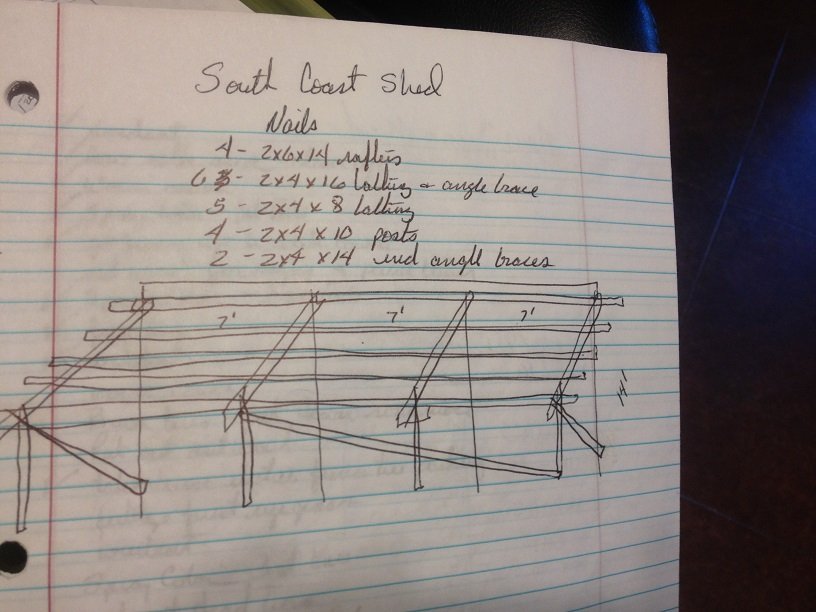 South Coast Shed
Nails
4 - 2x6x14 rafters
6 - 2x4x16 lathing + angle brace
5 - 2x4x8 lathing
4 - 2x4x10 posts
2 - 2x4x14 end angle braces
7' 7' 7'
14'